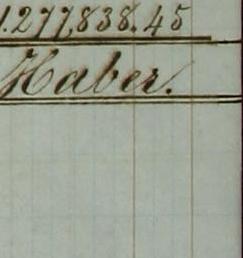 1.277,838.45
Haber.